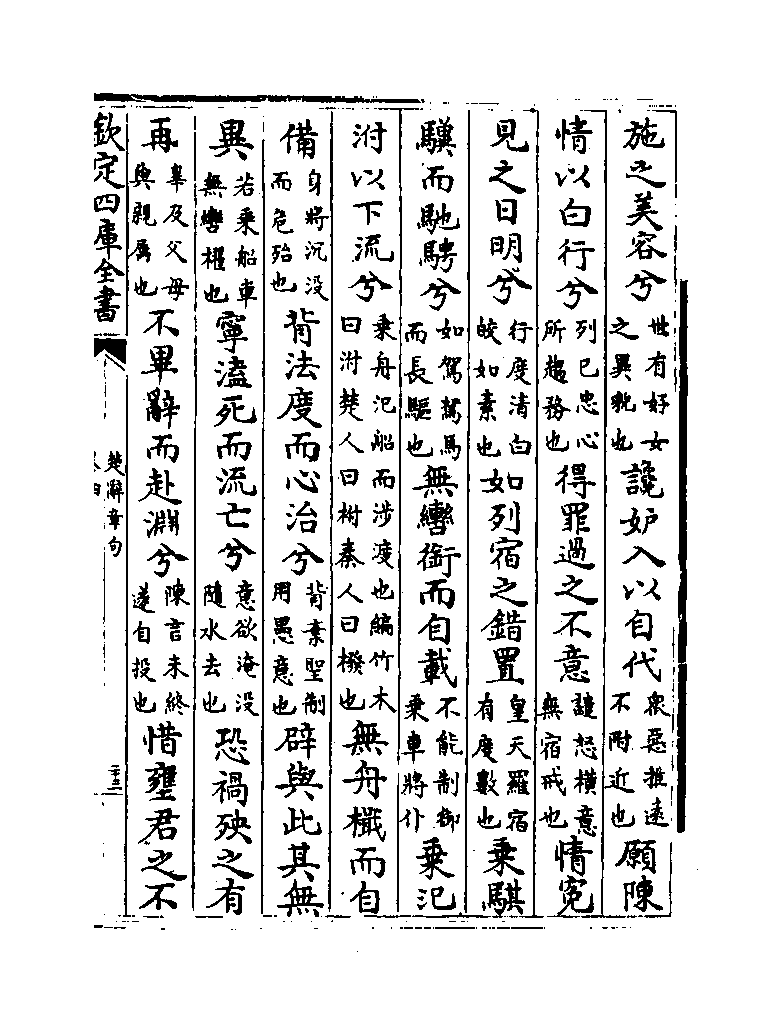 施之美容兮世有好女之異貌也讒妒入以自代衆惡推遠不附近也願陳
情以白行兮列已忠心所趨務也得罪過之不意譴怒横意無宿戒也情寃
見之日明兮行度清白皎如素也如列宿之錯置皇天羅宿有度數也乗騏
驥而馳騁兮如駕駑馬而長驅也無轡銜而自載不能制御乗車將仆乗氾
泭以下流兮乗舟氾船而涉渡也編竹木曰泭楚人曰柎秦人曰橃也無舟檝而自
備身將沉没而危殆也背法度而心治兮背棄聖制用愚意也辟與此其無
異若乗船車無轡櫂也寧溘死而流亡兮意欲淹没隨水去也恐禍殃之有
再辠及父母與親屬也不畢辭而赴淵兮陳言未終遂自投也惜壅君之不
欽定四庫全書
楚辭章句
二十三